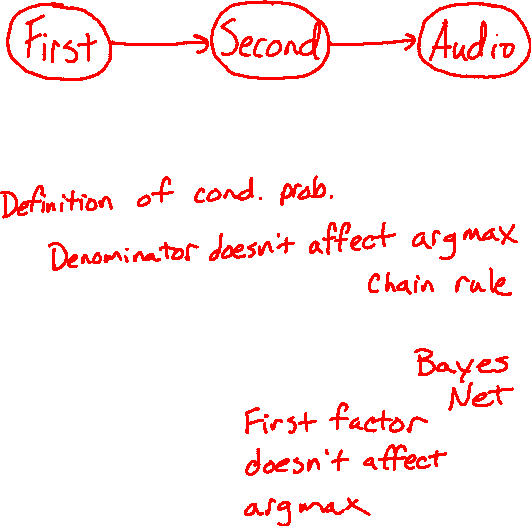 First Second Audio
Definition of cond. prob.
Denominator doesn't affect argmax
Chain rule
Bayes
Net
First factor
doesn't affect
argmax